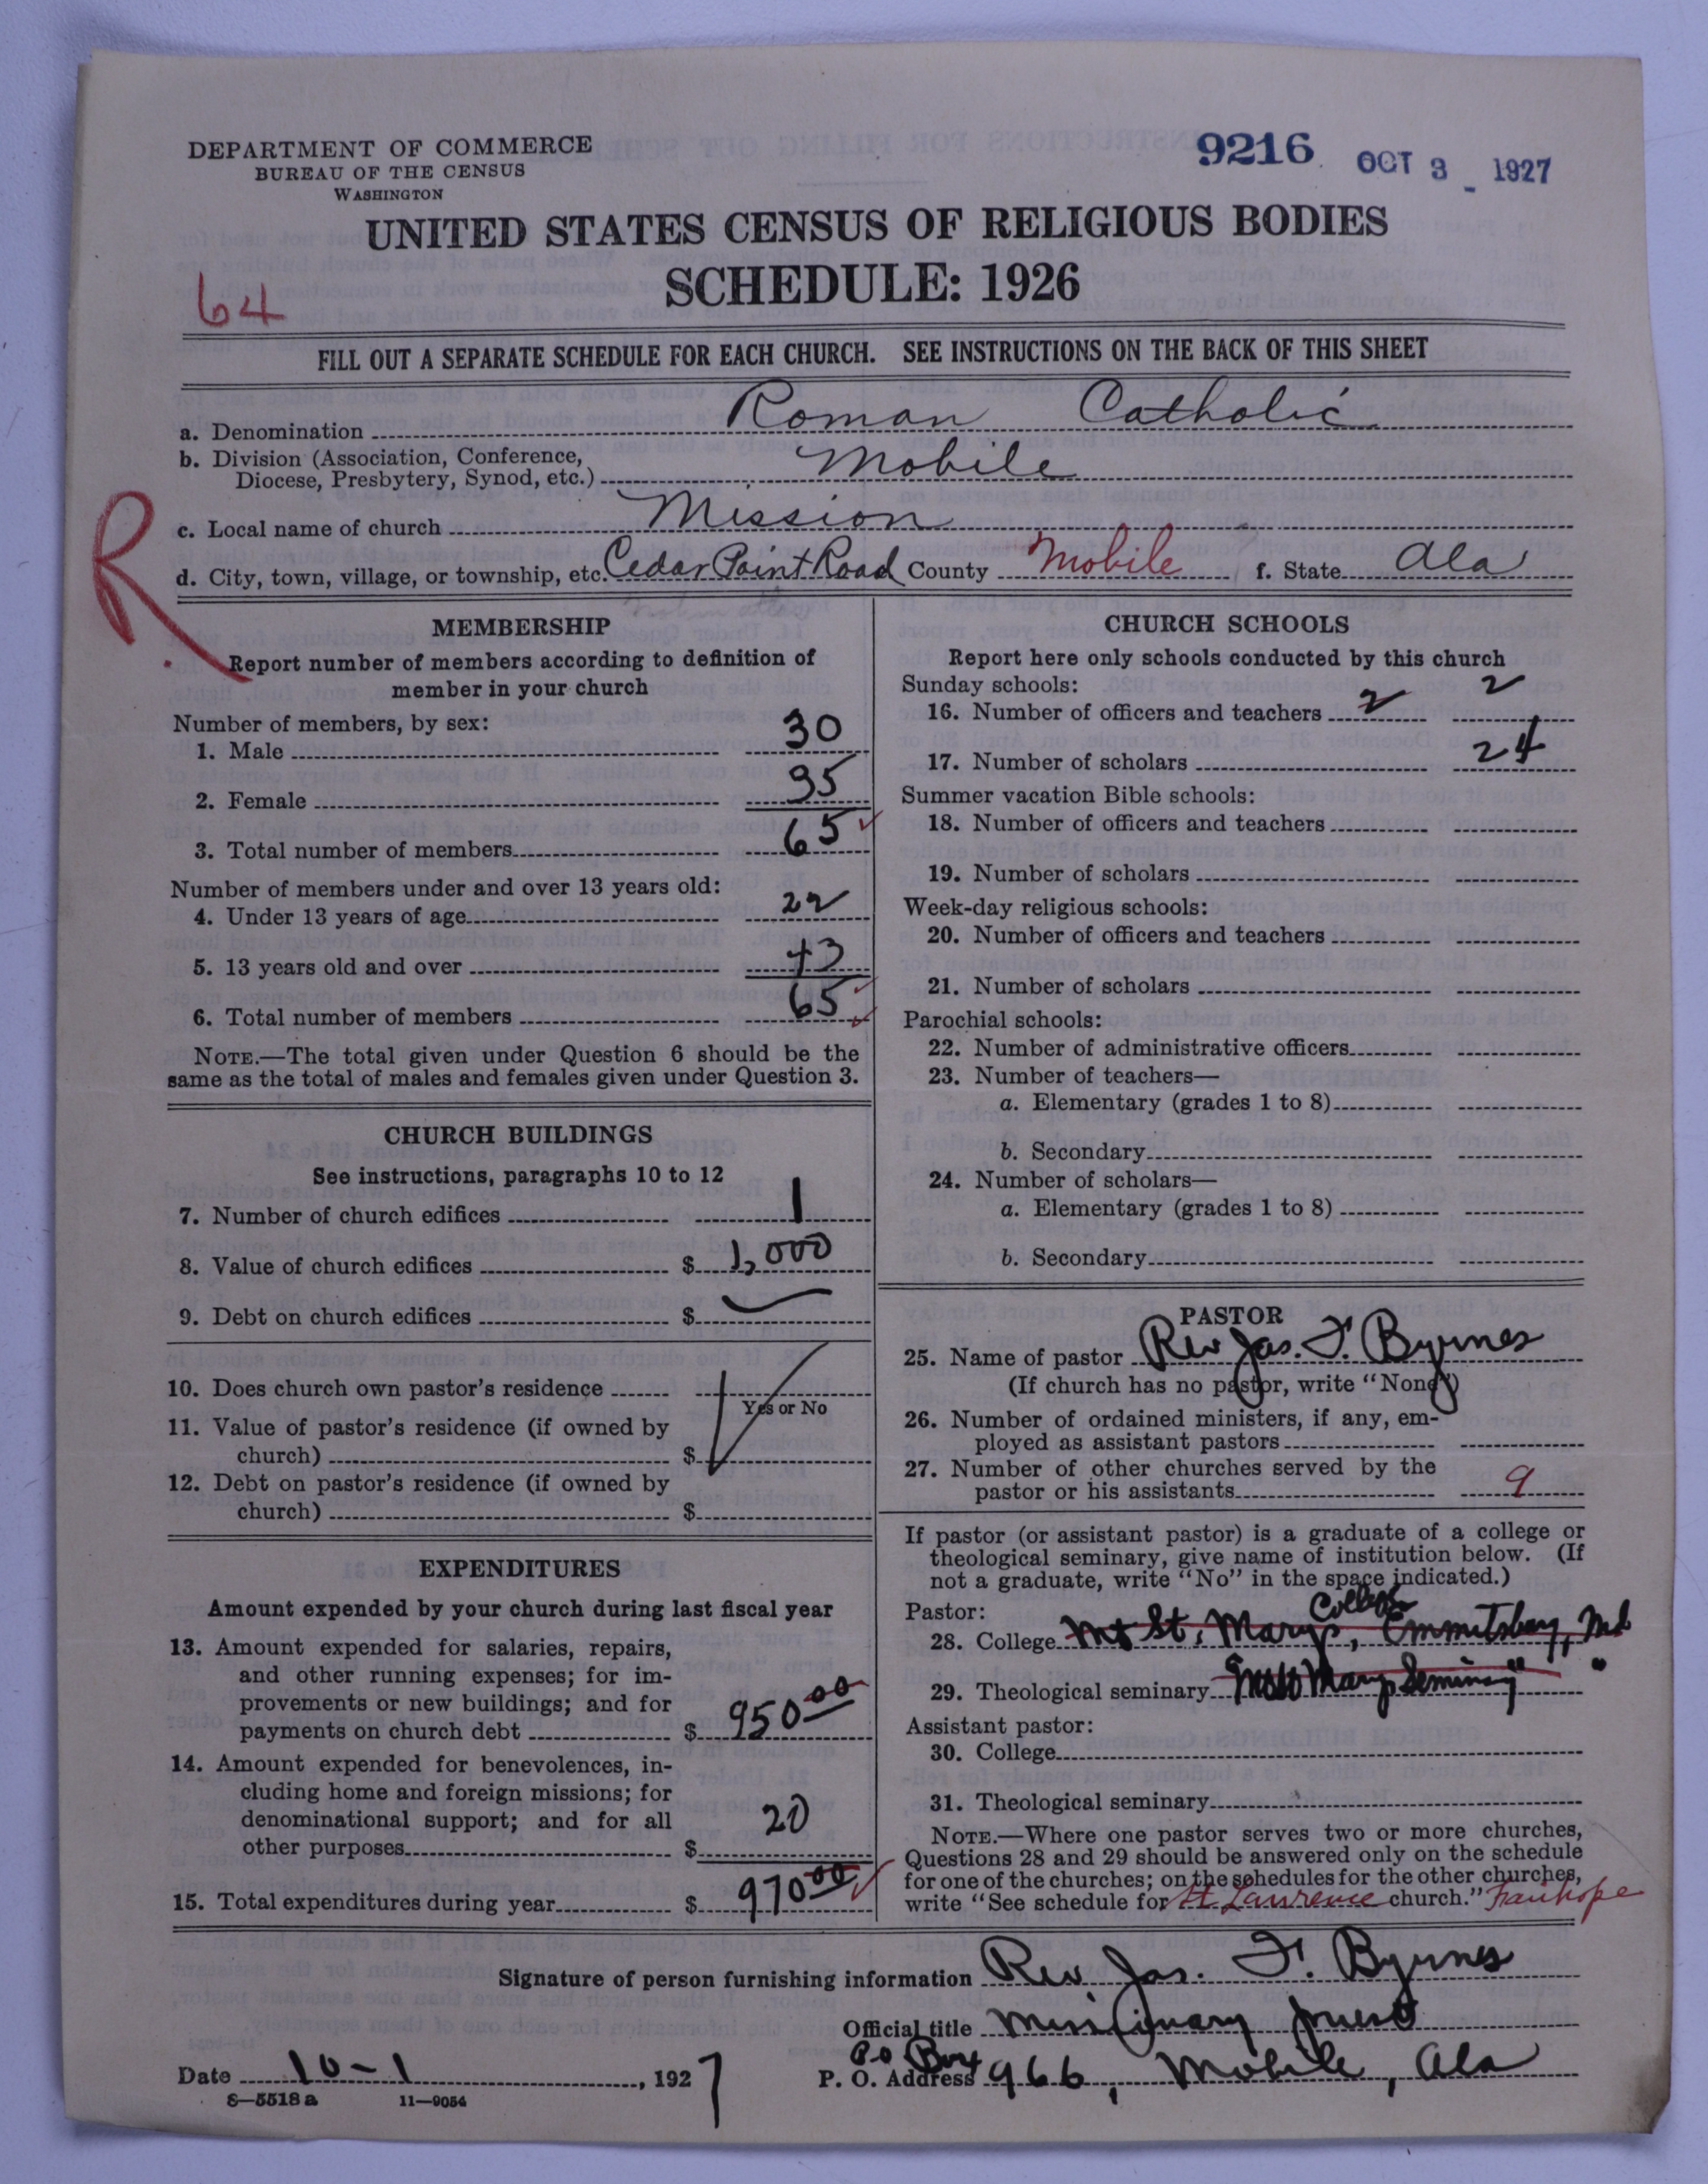 DEPARTMENT OF COMMERCE
BUREAU OF THE CENSUS
WASHINGTON
9216 OCT 3 - 1927
UNITED STATES CENSUS OF RELIGIOUS BODIES
SCHEDULE: 1926
64
FILL OUT A SEPARATE SCHEDULE FOR EACH CHURCH. SEE INSTRUCTIONS ON THE BACK OF THIS SHEET
a. Denomination Roman Catholic
b. Division (Association, Conference,
Diocese, Presbytery, Synod, etc.) Mobile
c. Local name of church Mission
d. City, town, village, or township, etc. Cedar Point Road County Mobile f. State Ala
R
MEMBERSHIP
Report number of members according to definition of
member in your church
Number of members, by sex:
1. Male 30
2. Female 35
3. Total number of members 65
Number of members under and over 13 years old:
4. Under 13 years of age 22
5. 13 years old and over 43
6. Total number of members 65
NOTE.—The total given under Question 6 should be the
same as the total of males and females given under Question 3.
CHURCH BUILDINGS
See instructions, paragraphs 10 to 12
7. Number of church edifices 1
8. Value of church edifices $ 1,000
9. Debt on church edifices $
10. Does church own pastor's residence
Yes or No
11. Value of pastor's residence (if owned by
church) $
12. Debt on pastor's residence (if owned by
church) $
EXPENDITURES
Amount expended by your church during last fiscal year
13. Amount expended for salaries, repairs,
and other running expenses; for im-
provements or new buildings; and for
payments on church debt $ 950 00
14. Amount expended for benevolences, in-
cluding home and foreign missions; for
denominational support; and for all
other purposes $ 20
15. Total expenditures during year $ 970 00
CHURCH SCHOOLS
Report here only schools conducted by this church
Sunday schools:
16. Number of officers and teachers 2 2
17. Number of scholars 24
Summer vacation Bible schools:
18. Number of officers and teachers
19. Number of scholars
Week-day religious schools:
20. Number of officers and teachers
21. Number of scholars
Parochial schools:
22. Number of administrative officers
23. Number of teachers—
a. Elementary (grades 1 to 8)
b. Secondary
24. Number of scholars—
a. Elementary (grades 1 to 8)
b. Secondary
PASTOR
25. Name of pastor Rev Jas. F. Byrnes
(If church has no pastor, write "None")
26. Number of ordained ministers, if any, em-
ployed as assistant pastors
27. Number of other churches served by the
pastor or his assistants 9
If pastor (or assistant pastor) is a graduate of a college or
theological seminary, give name of institution below. (If
not a graduate, write "No" in the space indicated.)
Pastor:
28. College Mt St. Marys College, Emmitsburg, Md
29. Theological seminary Mt St Marys Seminary " "
Assistant pastor:
30. College
31. Theological seminary
NOTE.—Where one pastor serves two or more churches,
Questions 28 and 29 should be answered only on the schedule
for one of the churches; on the schedules for the other churches,
write "See schedule for St Lawrence church." Fairhope
Signature of person furnishing information Rev Jas. F. Byrnes
Official title Missionary priest
Date 10-1, 1927
P. O. Address P.O Box 966, Mobile, Ala
8—5518 a 11—9054